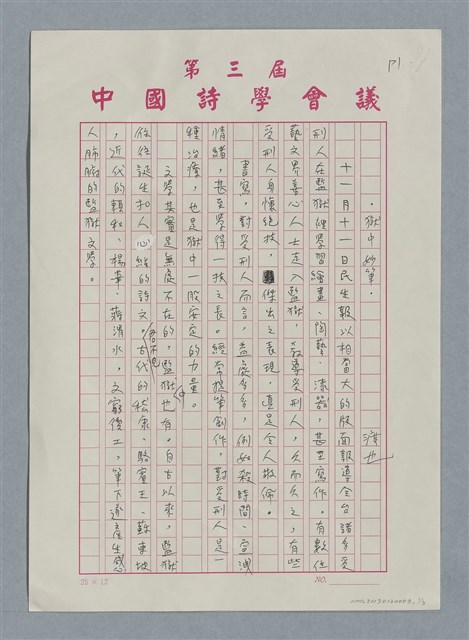 P1
第三屆
中國詩學會議
·獄中妙筆· 渡也
十一月十一日民生報以相當大的版面報導全台諸多受
刑人在監獄裡學習繪畫、陶藝、漆器，甚至寫作。有數位
藝文界善心人士走入監獄，教導受刑人，久而久之，有些
受刑人身懷絕技，傑出之表現，真是令人敬佩。
書寫，對受刑人而言，益處多多，例如殺時間、宣洩
情緒，甚至學得一技之長。經常提筆創作，對受刑人是一
種治療，也是獄中一股安定的力量。
文學其實是無處不在的，監獄也有。自古以來，監獄
往往誕生扣人心絃的詩文。君不見古代的嵇康、駱賓王、蘇東坡
，近代的賴和、楊華、蔣渭水，文窮後工，筆下遂產生感
人肺腑的監獄文學。
25×12
NO.